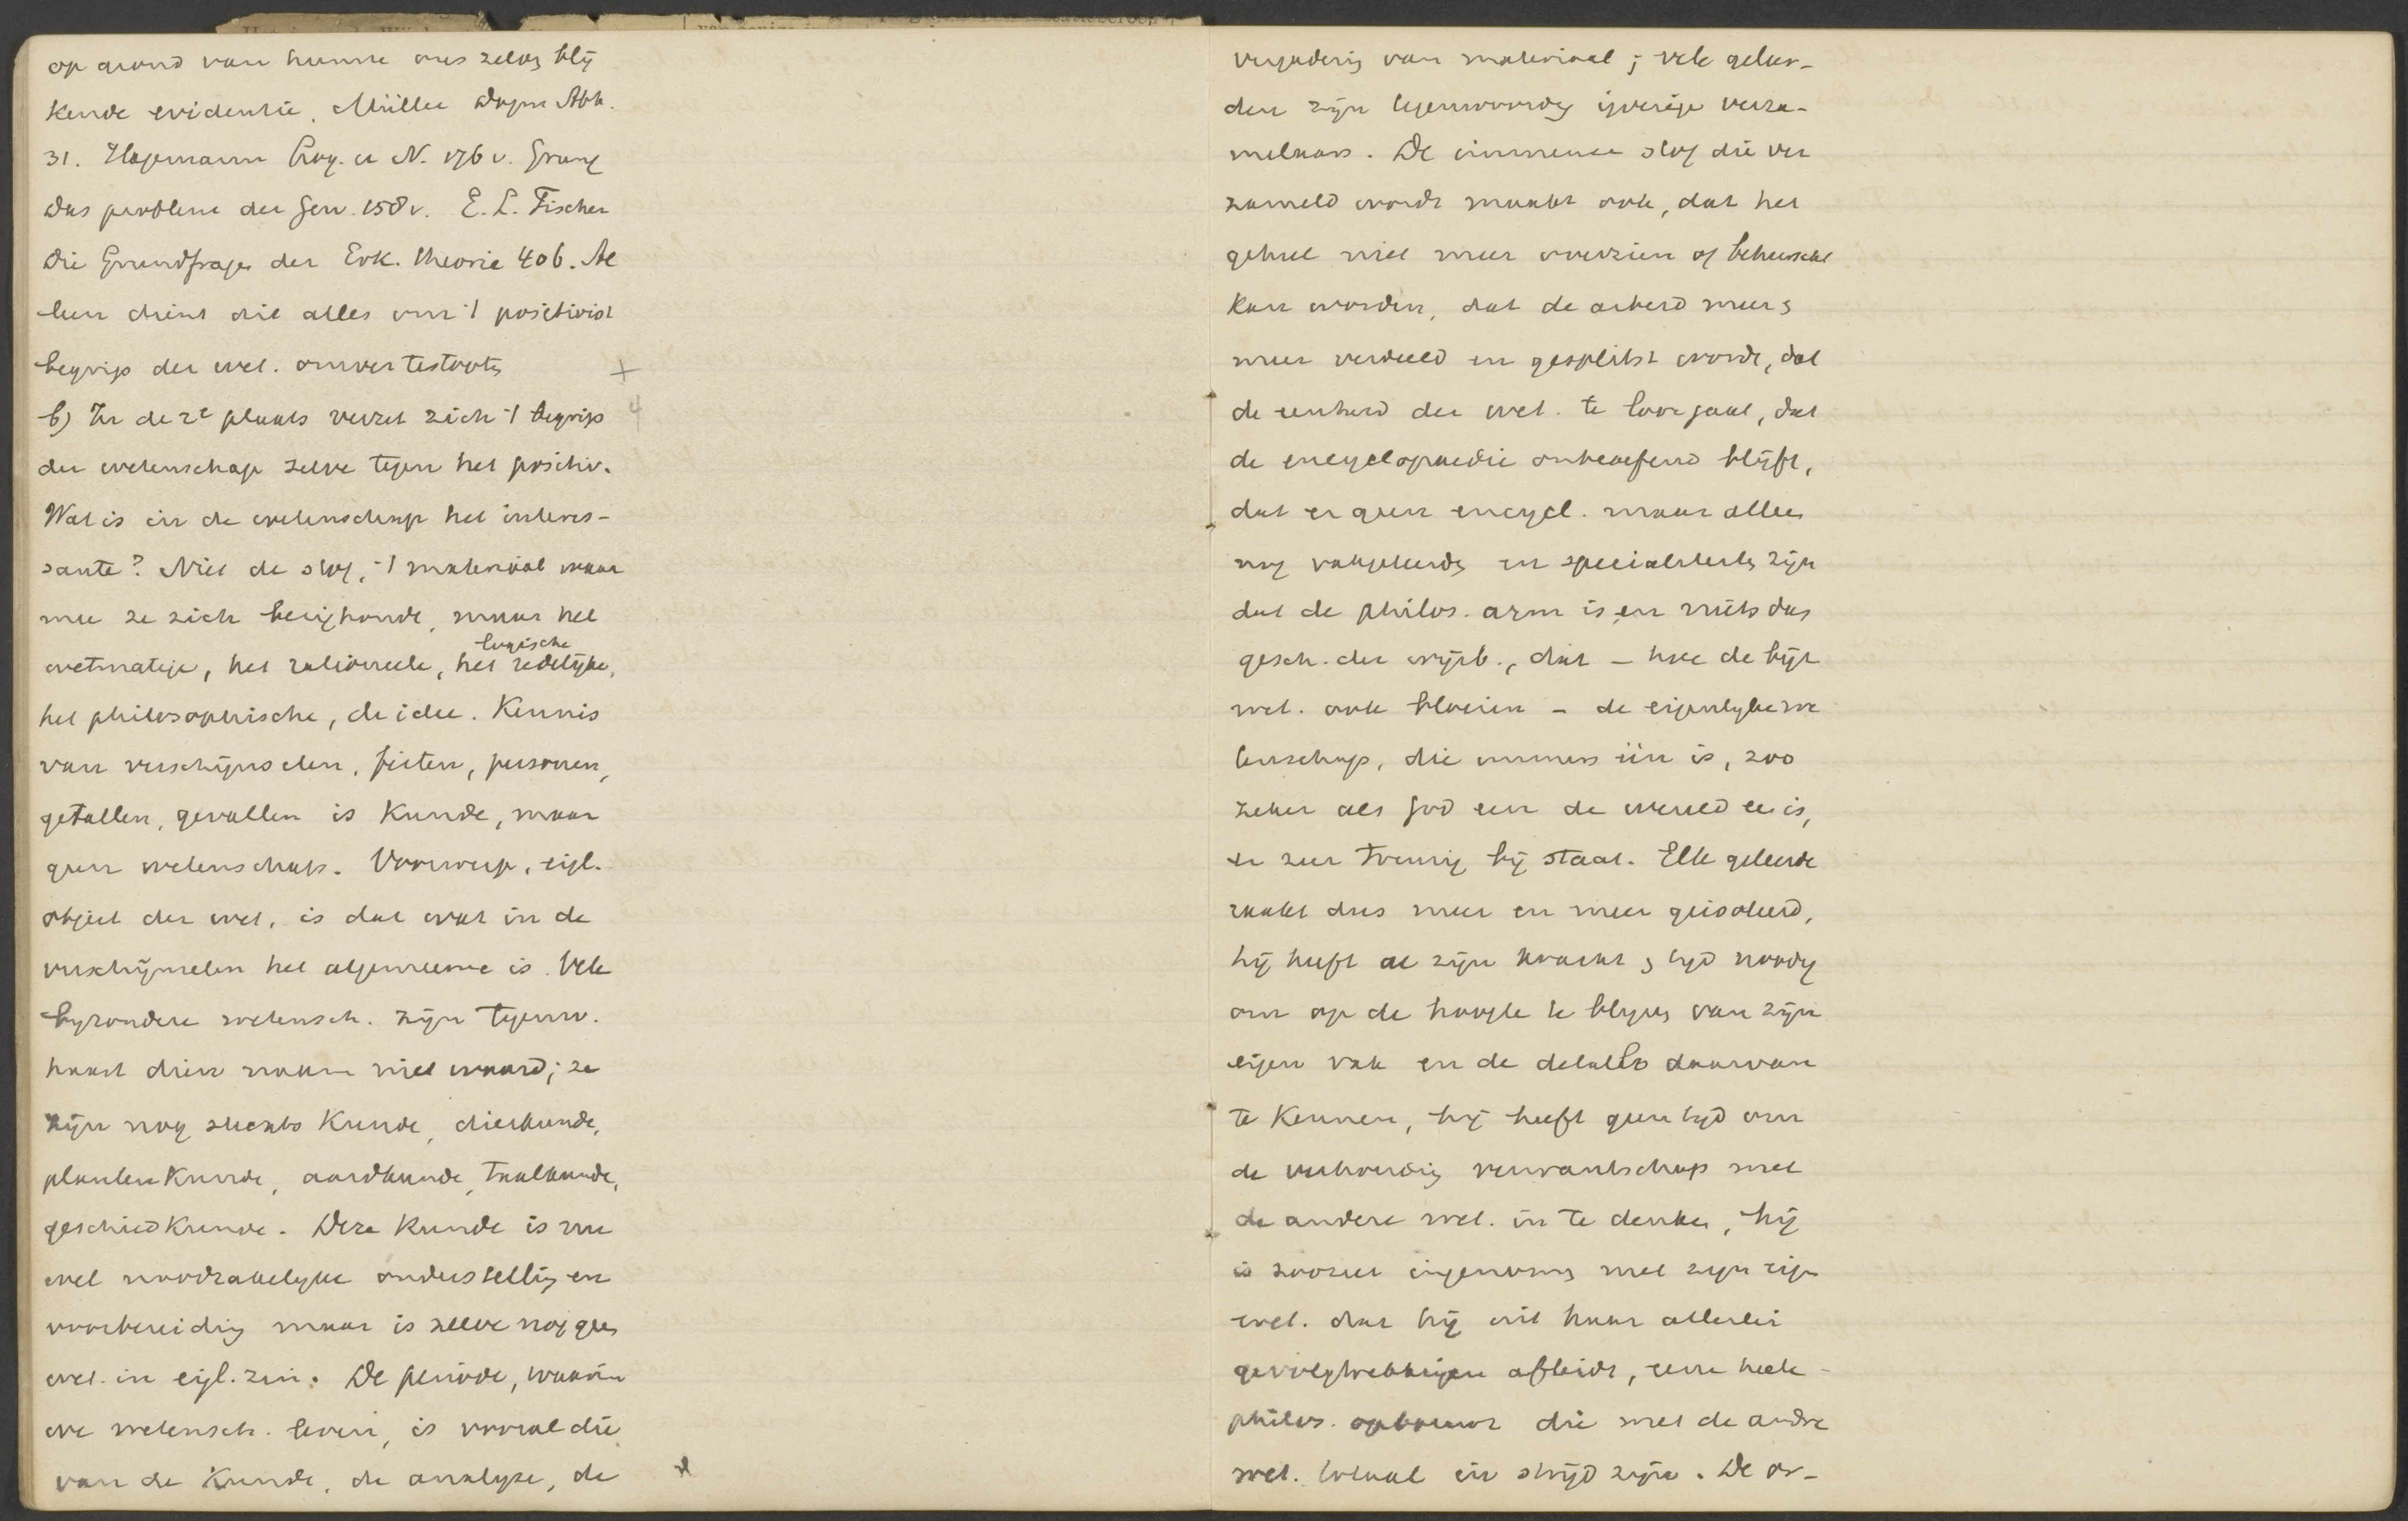 op grond van hunne ons zelvg blij
kende evidentie. Müller Dogm Abh.
31. Hagemann Log. u N. 176 v. Grung
Das problem der Gew. 158 v. E. L. Fischer
Die Grundfragen der Erk. theorie 406. Al
leen dient dit alles om 't positivist
begrip der wet. omver te stooten
b) In de 2e plaats verzet zich 't begrip
der wetenschap zelve tegen het positiv.
Wat is in de wetenschap het interes-
sante? Niet de stof, 't materiaal waar
mee ze zich bezighoudt, maar het
wetmatige, het rationeele, het logische redelijke,
het philosophische, de idee. Kennis
van verschijnselen, feiten, personen,
getallen, gevallen is Kunde, maar
geen wetenschap. Voorwerp, eigl.
object der wet. is dat wat in de
verschijnselen het algemeene is. Vele
byzondere wetensch. zijn tegenw.
haast dien naam niet waard; ze
zijn nog slechts Kunde, dierkunde,
plantenKunde, aardkunde, taalkunde,
geschiedKunde. Deze Kunde is nu
wel noodzakelyke onderstelling en
voorbereiding maar is zelve nog geen
wet. in eigl. zin. De periode, waarin
we wetensch. leven, is vooral die
van de Kunde, de analyse, de
vergadering van materiaal; vele geleer-
den zijn tegenwoordig ijverige verza-
melaars. De immense stof die ver
zameld wordt maakt ook, dat het
geheel niet meer overzien of beheerscht
kan worden, dat de arbeid meer &
meer verdeeld en gesplitst wordt, dat
de eenheid der wet. te loor gaat, dat
de encyclopaedie onbeoefend blijft,
dat er geen encycl. maar alleen
nog vakgeleerden en specialiteiten zijn
dat de philos. arm is en niets dan
gesch. der wijsb., dat – hoe de bijz
wet. ook bloeien – de eigenlyke we
tenschap, die immers één is, zoo
zeker als God een de wereld ee is,
er zeer treurig bij staat. Elk geleerde
raakt dus meer en meer geisoleerd,
hij heeft al zijn kracht & tyd noodig
om op de hoogte te blyven van zijn
eigen vak en de details daarvan
te Kennen, hij heeft geen tyd om
de verhouding verwantschap met
de andere wet. in te denken, hij
is zoozeer ingenomen met zijn eigen
wet. dat hij uit haar allerlei
gevolgtrekkingen afleidt, eene heele
philos. opbouwt die met de andre
wet. totaal in strijd zijn. De ar-